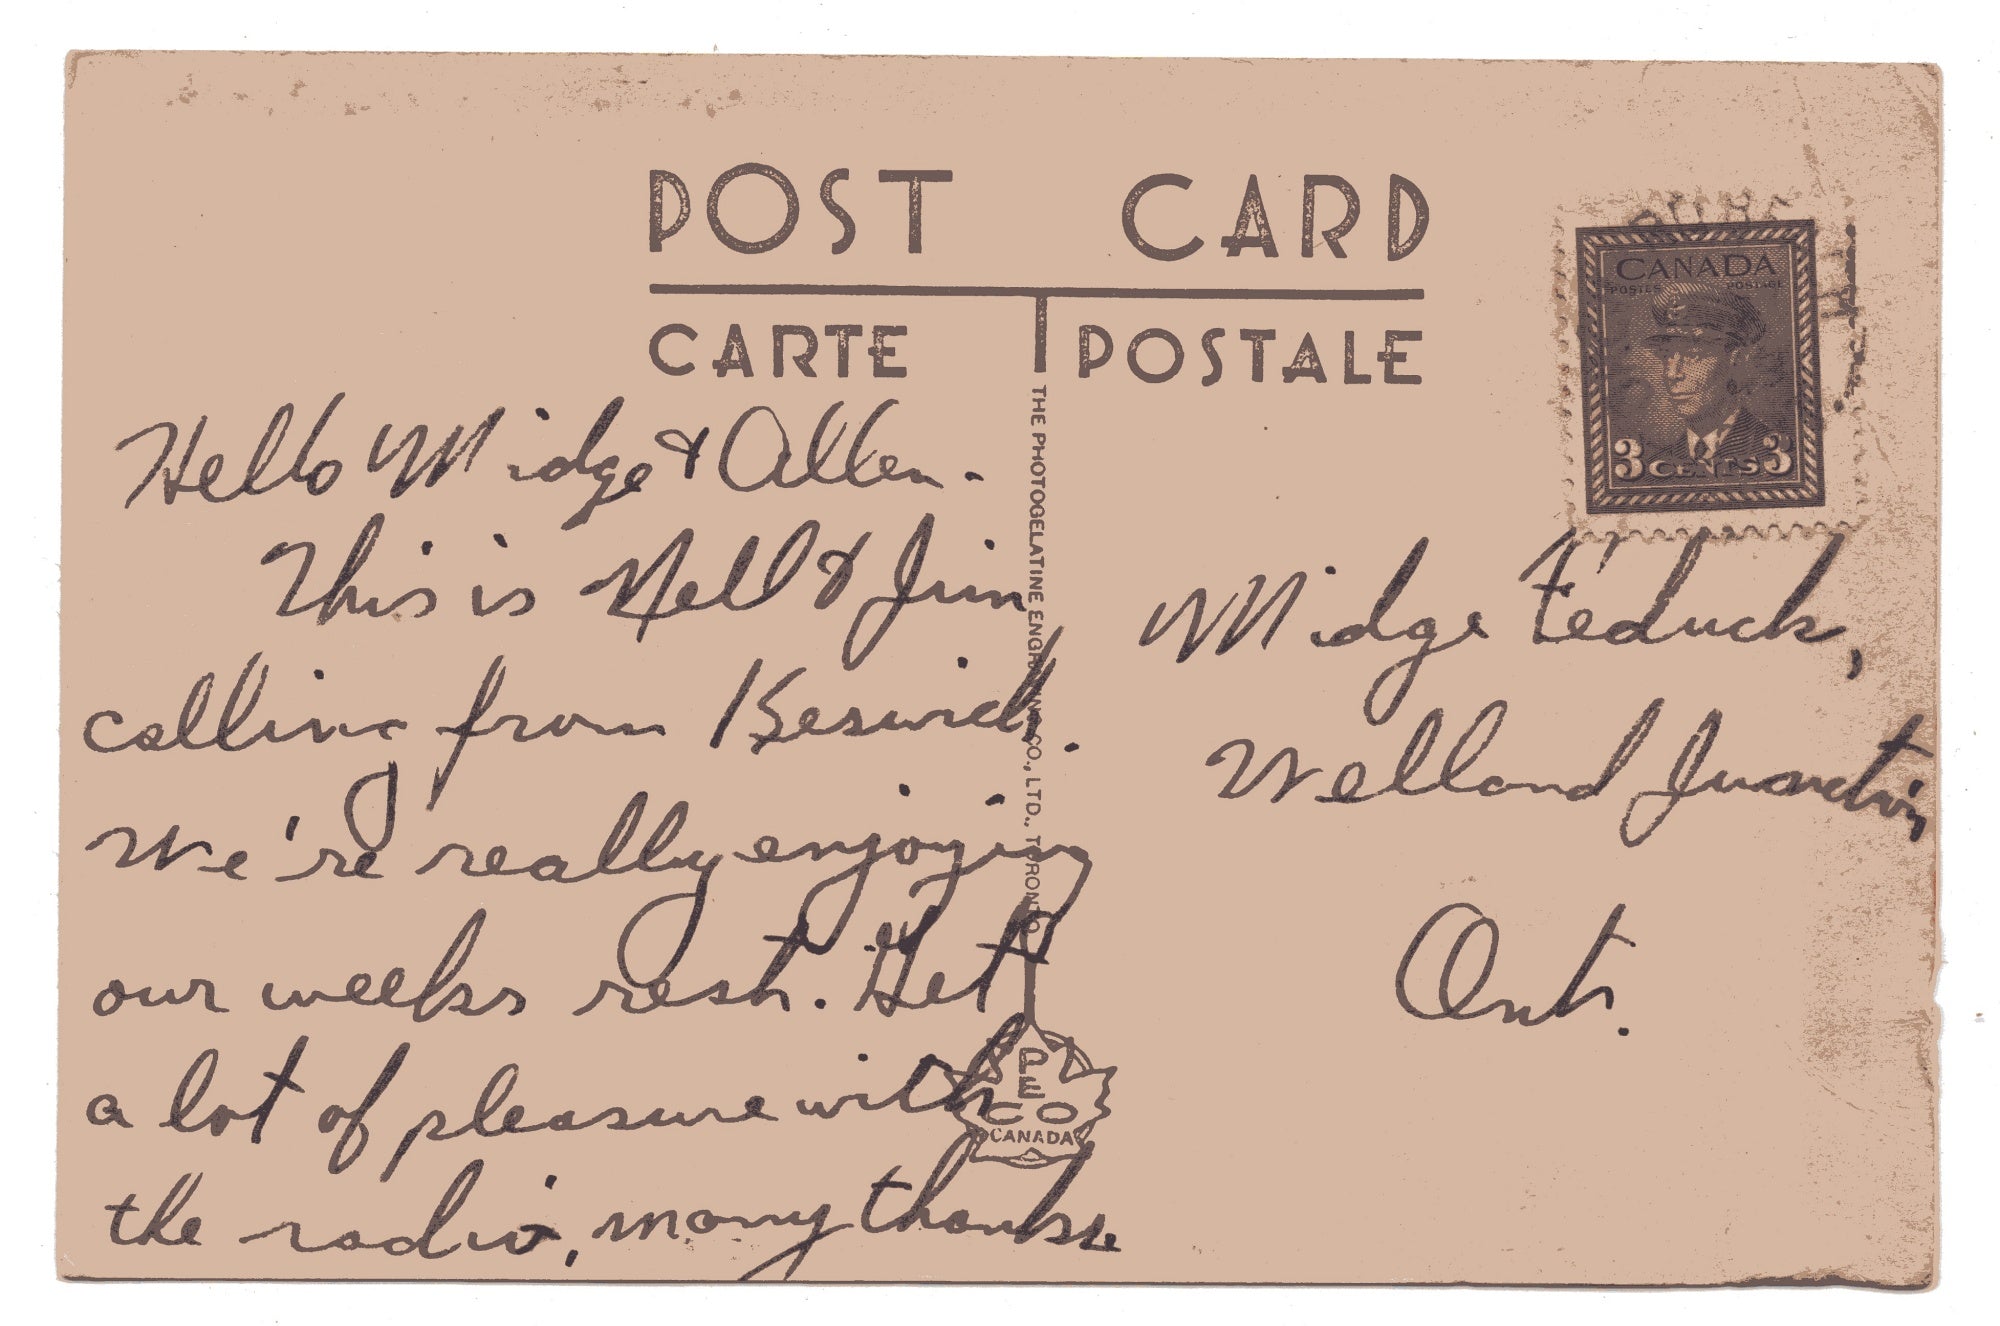 POST CARD
CARTE POSTALE
CANADA
POSTES POSTAGE
3 CENTS 3
Hello Midge & Allen.
This is Nell & Jim
calling from Keswick.
We're really enjoying
our weeks rest. Get
a lot of pleasure with
the radio, many thanks
THE PHOTOGELATINE ENGRAVING CO., LTD., TORONTO
PECO
CANADA
Midge Feduck,
Welland Junction,
Ont.